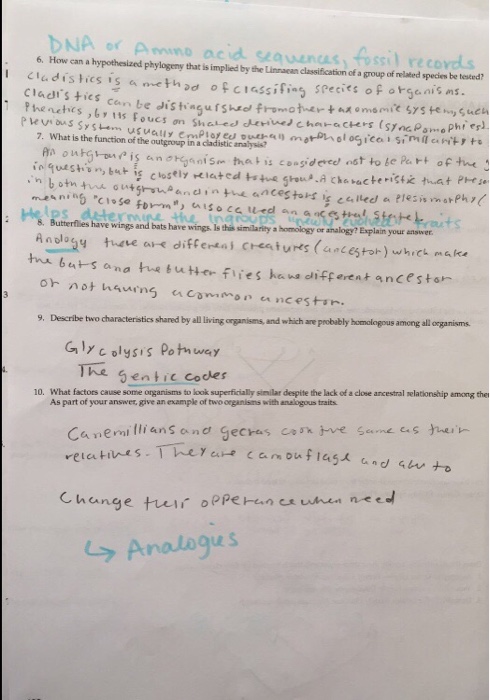 DNA or Amino acid sequences, fossil records
6. How can a hypothesized phylogeny that is implied by the Linnaean classification of a group of related species be tested?
Cladistics is a method of classifing species of organisms.
Cladistics can be distinguished from other taxonomic system, such
Phenetics, by its foucs on shared derived characters (synapomophies).
Previous system usually employed overall morphological similarity to
7. What is the function of the outgroup in a cladistic analysis?
An outgroup is an organism that is considered not to be part of the
in question, but is closely related to the group. A characteristic that prese
in both the outgroup and in the ancestors is called a plesiomorphy (
meaning "close form", also called an ancestral state
Helps determine the ingroups newly evolved traits
8. Butterflies have wings and bats have wings. Is this similarity a homology or analogy? Explain your answer.
Anology there are different creatures (ancestor) which make
the bats and the butter flies have different ancestor
or not having a common ancestor.
3
9. Describe two characteristics shared by all living organisms, and which are probably homologous among all organisms.
Glycolysis Pathway
The gentic codes
10. What factors cause some organisms to look superficially similar despite the lack of a close ancestral relationship among the
As part of your answer, give an example of two organisms with analogous traits.
Canemillians and gecras same as their
relatives. They are camouflage and abu to
Change their opperance when need
↳ Analogies